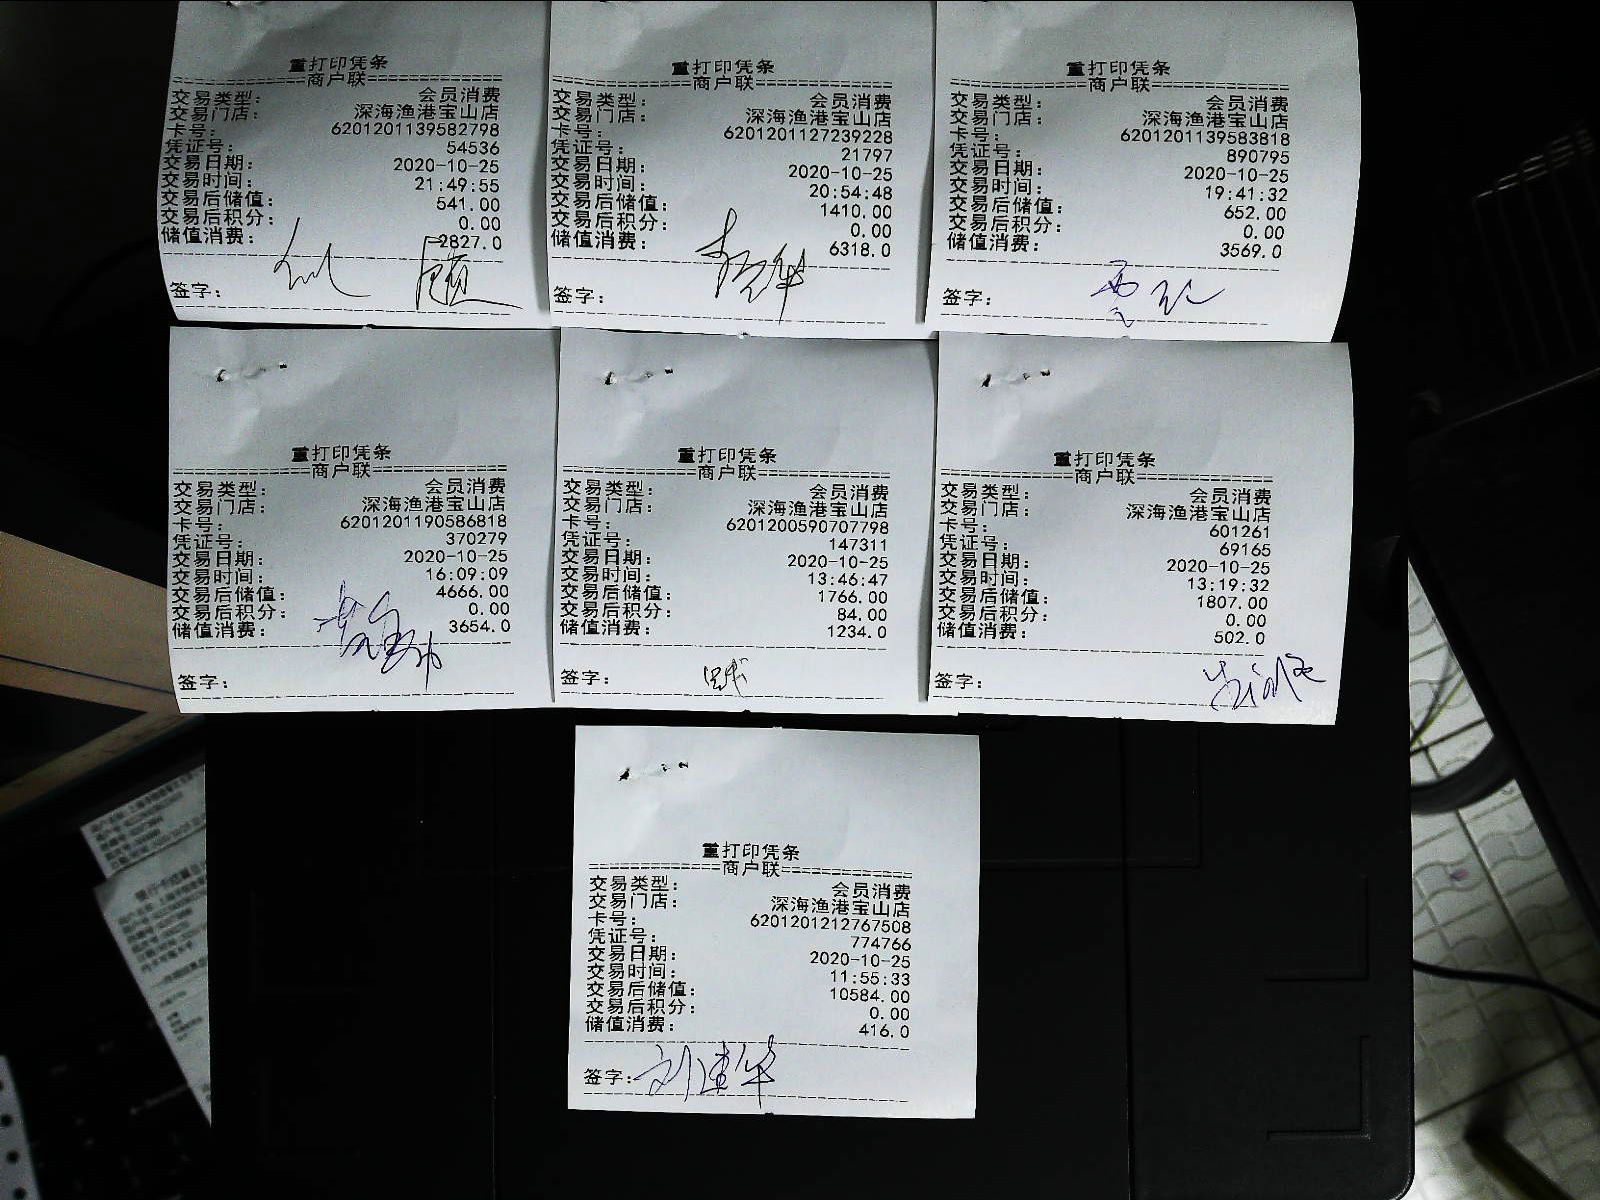 重打印凭条
==========商户联==========
交易类型： 会员消费
交易门店： 深海渔港宝山店
卡号： 6201201139582798
凭证号： 54536
交易日期： 2020-10-25
交易时间： 21:49:55
交易后储值： 541.00
交易后积分： 0.00
储值消费： 2827.0
签字：
重打印凭条
==========商户联==========
交易类型： 会员消费
交易门店： 深海渔港宝山店
卡号： 6201201127239228
凭证号： 21797
交易日期： 2020-10-25
交易时间： 20:54:48
交易后储值： 1410.00
交易后积分： 0.00
储值消费： 6318.0
签字：
重打印凭条
==========商户联==========
交易类型： 会员消费
交易门店： 深海渔港宝山店
卡号： 6201201139583818
凭证号： 890795
交易日期： 2020-10-25
交易时间： 19:41:32
交易后储值： 652.00
交易后积分： 0.00
储值消费： 3569.0
签字：
重打印凭条
==========商户联==========
交易类型： 会员消费
交易门店： 深海渔港宝山店
卡号： 6201201190586818
凭证号： 370279
交易日期： 2020-10-25
交易时间： 16:09:09
交易后储值： 4666.00
交易后积分： 0.00
储值消费： 3654.0
签字：
重打印凭条
==========商户联==========
交易类型： 会员消费
交易门店： 深海渔港宝山店
卡号： 6201200590707798
凭证号： 147311
交易日期： 2020-10-25
交易时间： 13:46:47
交易后储值： 1766.00
交易后积分： 84.00
储值消费： 1234.0
签字：
重打印凭条
==========商户联==========
交易类型： 会员消费
交易门店： 深海渔港宝山店
卡号： 601261
凭证号： 69165
交易日期： 2020-10-25
交易时间： 13:19:32
交易后储值： 1807.00
交易后积分： 0.00
储值消费： 502.0
签字：
重打印凭条
==========商户联==========
交易类型： 会员消费
交易门店： 深海渔港宝山店
卡号： 6201201212767508
凭证号： 774766
交易日期： 2020-10-25
交易时间： 11:55:33
交易后储值： 10584.00
交易后积分： 0.00
储值消费： 416.0
签字：刘建华